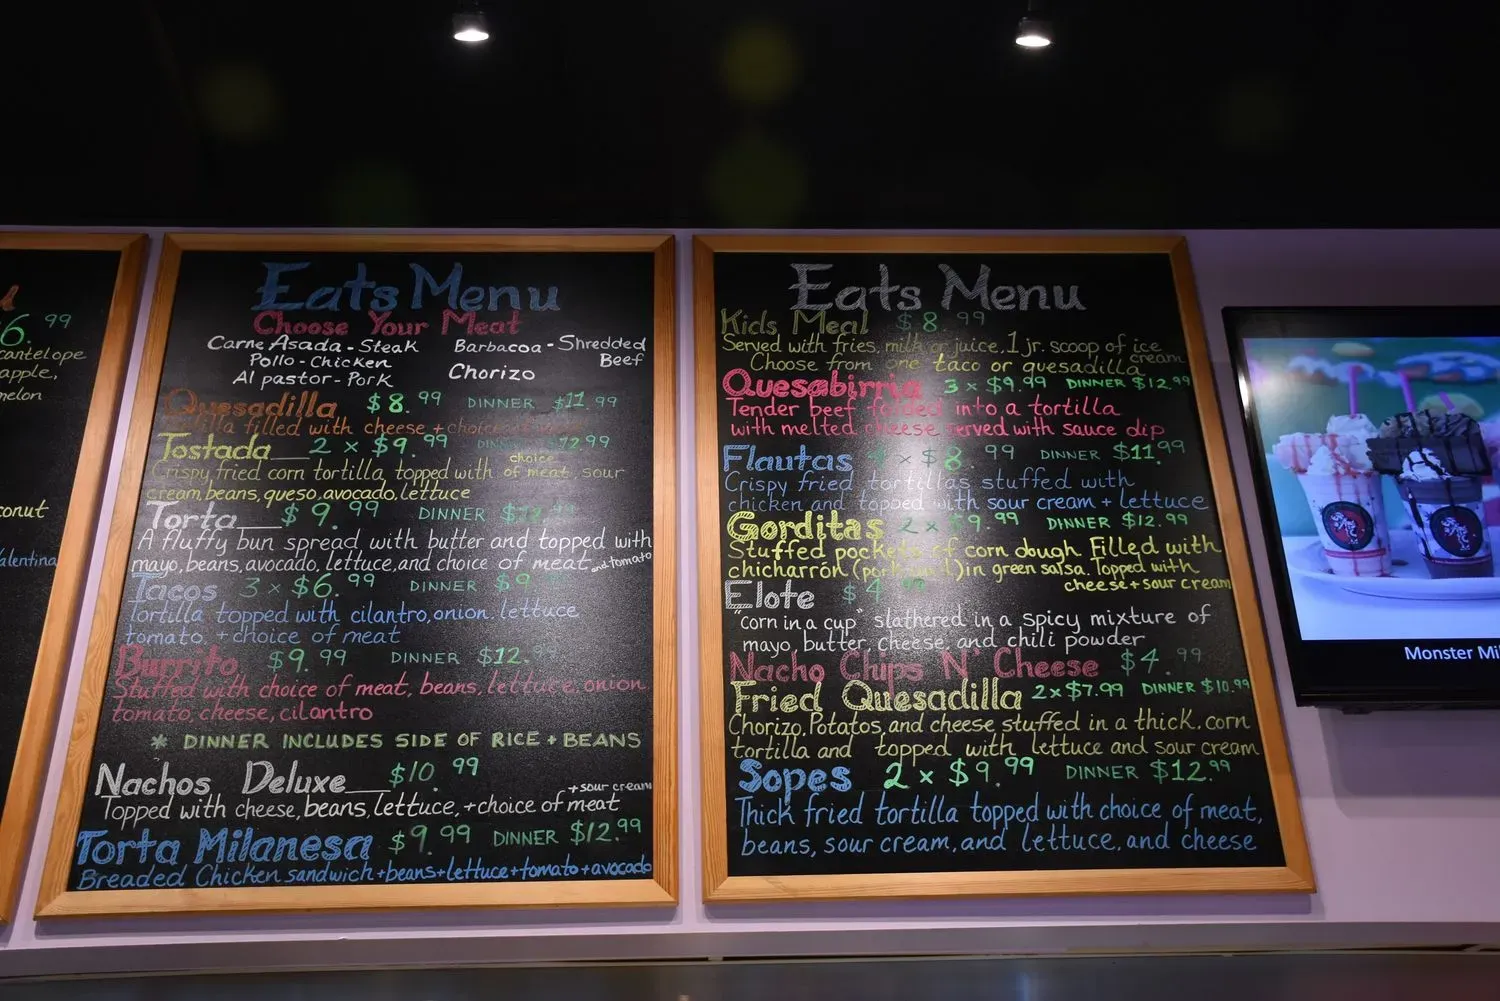 6.99
cantelope
apple,
melon
conut
Valentina
Eats Menu
Choose Your Meat
Carne Asada - Steak
Pollo - Chicken
Al pastor - Pork
Barbacoa - Shredded
Beef
Chorizo
Quesadilla $8.99 DINNER $11.99
filled with cheese + choice
Tostada 2 x $9.99 DINNER $12.99
Crispy fried corn tortilla, topped with choice of meat, sour
cream, beans, queso, avocado, lettuce
Torta $9.99 DINNER
A fluffy bun spread with butter and topped with
mayo, beans, avocado, lettuce, and choice of meat and tomato
Tacos 3 x $6.99 DINNER $9.99
Tortilla topped with cilantro, onion, lettuce
tomato, + choice of meat
Burrito $9.99 DINNER $12.99
Stuffed with choice of meat, beans, lettuce, onion
tomato, cheese, cilantro
* DINNER INCLUDES SIDE OF RICE + BEANS
Nachos Deluxe $10.99
Topped with cheese, beans, lettuce, + choice of meat + sour cream
Torta Milanesa $9.99 DINNER $12.99
Breaded Chicken sandwich + beans + lettuce + tomato + avocado
Eats Menu
Kids Meal $8.99
Served with fries, milk or juice, 1 jr. scoop of ice cream
Choose from one taco or quesadilla
Quesabirria 3 x $9.99 DINNER $12.99
Tender beef folded into a tortilla
with melted cheese served with sauce dip
Flautas 4 x $8.99 DINNER $11.99
Crispy fried tortillas stuffed with
chicken and topped with sour cream + lettuce
Gorditas 2 x $9.99 DINNER $12.99
Stuffed pockets of corn dough. Filled with
chicharrón (pork in green salsa. Topped with
cheese + sour cream
Elote $4.99
"corn in a cup" slathered in a spicy mixture of
mayo, butter, cheese, and chili powder
Nacho Chips N' Cheese $4.99
Fried Quesadilla 2 x $7.99 DINNER $10.99
Chorizo, Potatos, and cheese stuffed in a thick, corn
tortilla and topped with lettuce and sour cream
Sopes 2 x $9.99 DINNER $12.99
Thick fried tortilla topped with choice of meat,
beans, sour cream, and lettuce, and cheese
Monster Mi